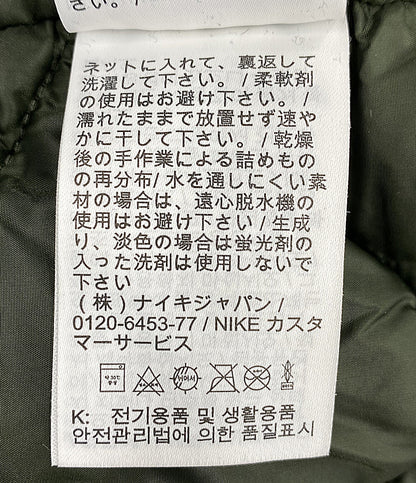 さい。/
ネットに入れて、裏返して
洗濯して下さい。/ 柔軟剤
の使用はお避け下さい。/
濡れたままで放置せず速や
かに干して下さい。/ 乾燥
後の手作業による詰めもの
の再分布/ 水を通しにくい素
材の場合は、遠心脱水機の
使用はお避け下さい / 生成
り、淡色の場合は蛍光剤の
入った洗剤は使用しないで
下さい
(株) ナイキジャパン /
0120-6453-77 / NIKE カスタ
マーサービス
약 30℃
중성
뉘어서
K: 전기용품 및 생활용품
안전관리법에 의한 품질표시